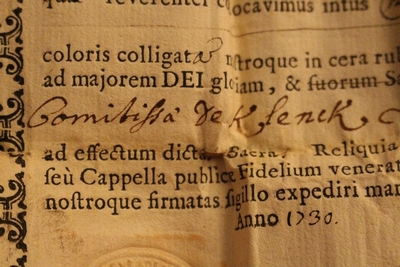 reverenter collocavimus intus
coloris colligatâ nostroque in cera rub
ad majorem DEI gloriam, & suorum Sa
Comitissâ de Klenck, C
ad effectum dictas Sacras Reliquia
seù Cappella publicè Fidelium venerat
nostroque firmatas sigillo expediri man
Anno 1730.